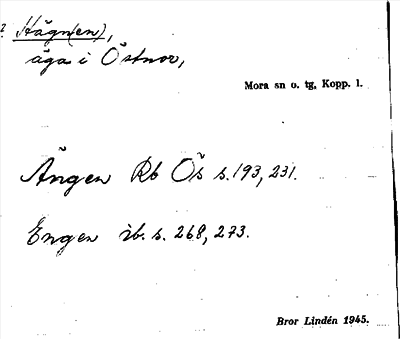 ? Hägn(en),
äga i Östnor,
Mora sn o. tg, Kopp. l.
Ängen Rb Ös s. 193, 231.
Engen ib. s. 268, 273.
Bror Lindén 1945.